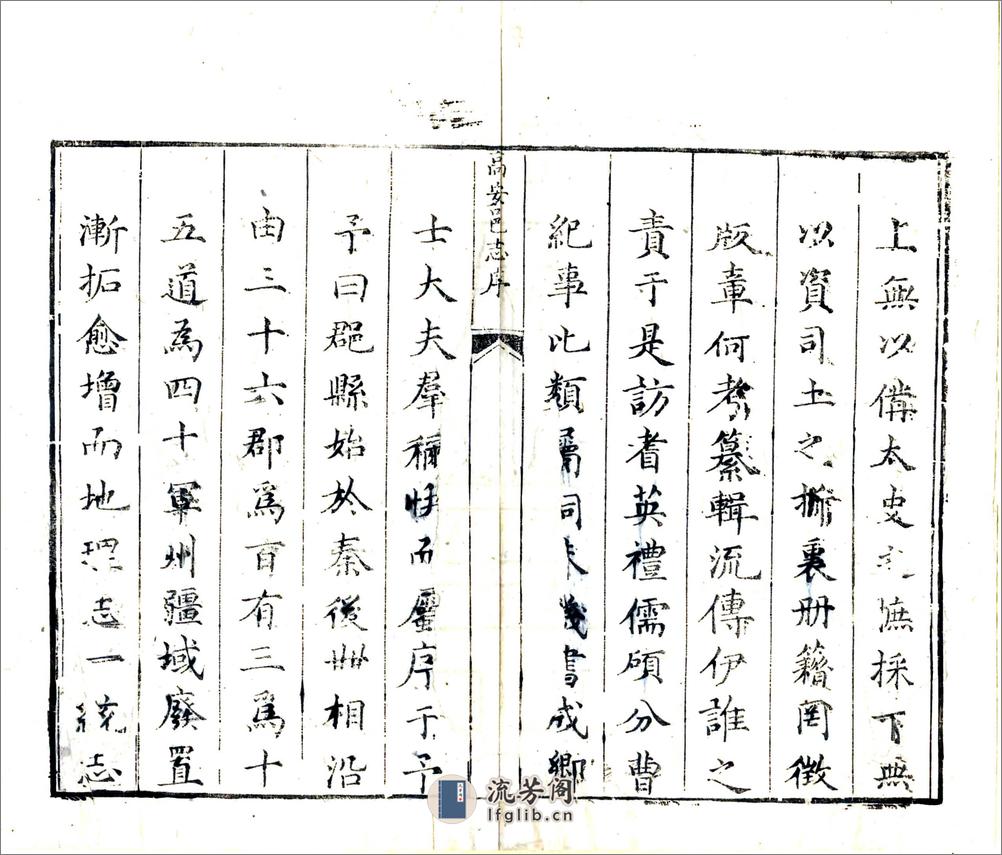 上無以偹太史之採下無
以資司土之衷册籍罔徵
版章何考纂輯流傳伊誰之
責于是訪耆英禮儒碩分曹
紀事比類屬詞未幾書成鄉
高安邑志序
士大夫羣稱快而屬序于予
予曰郡縣始於秦後世相沿
由三十六郡爲百有三爲十
五道為四十軍州疆域廢置
漸拓愈增而地理志一統志
流芳阁
lfglib.cn